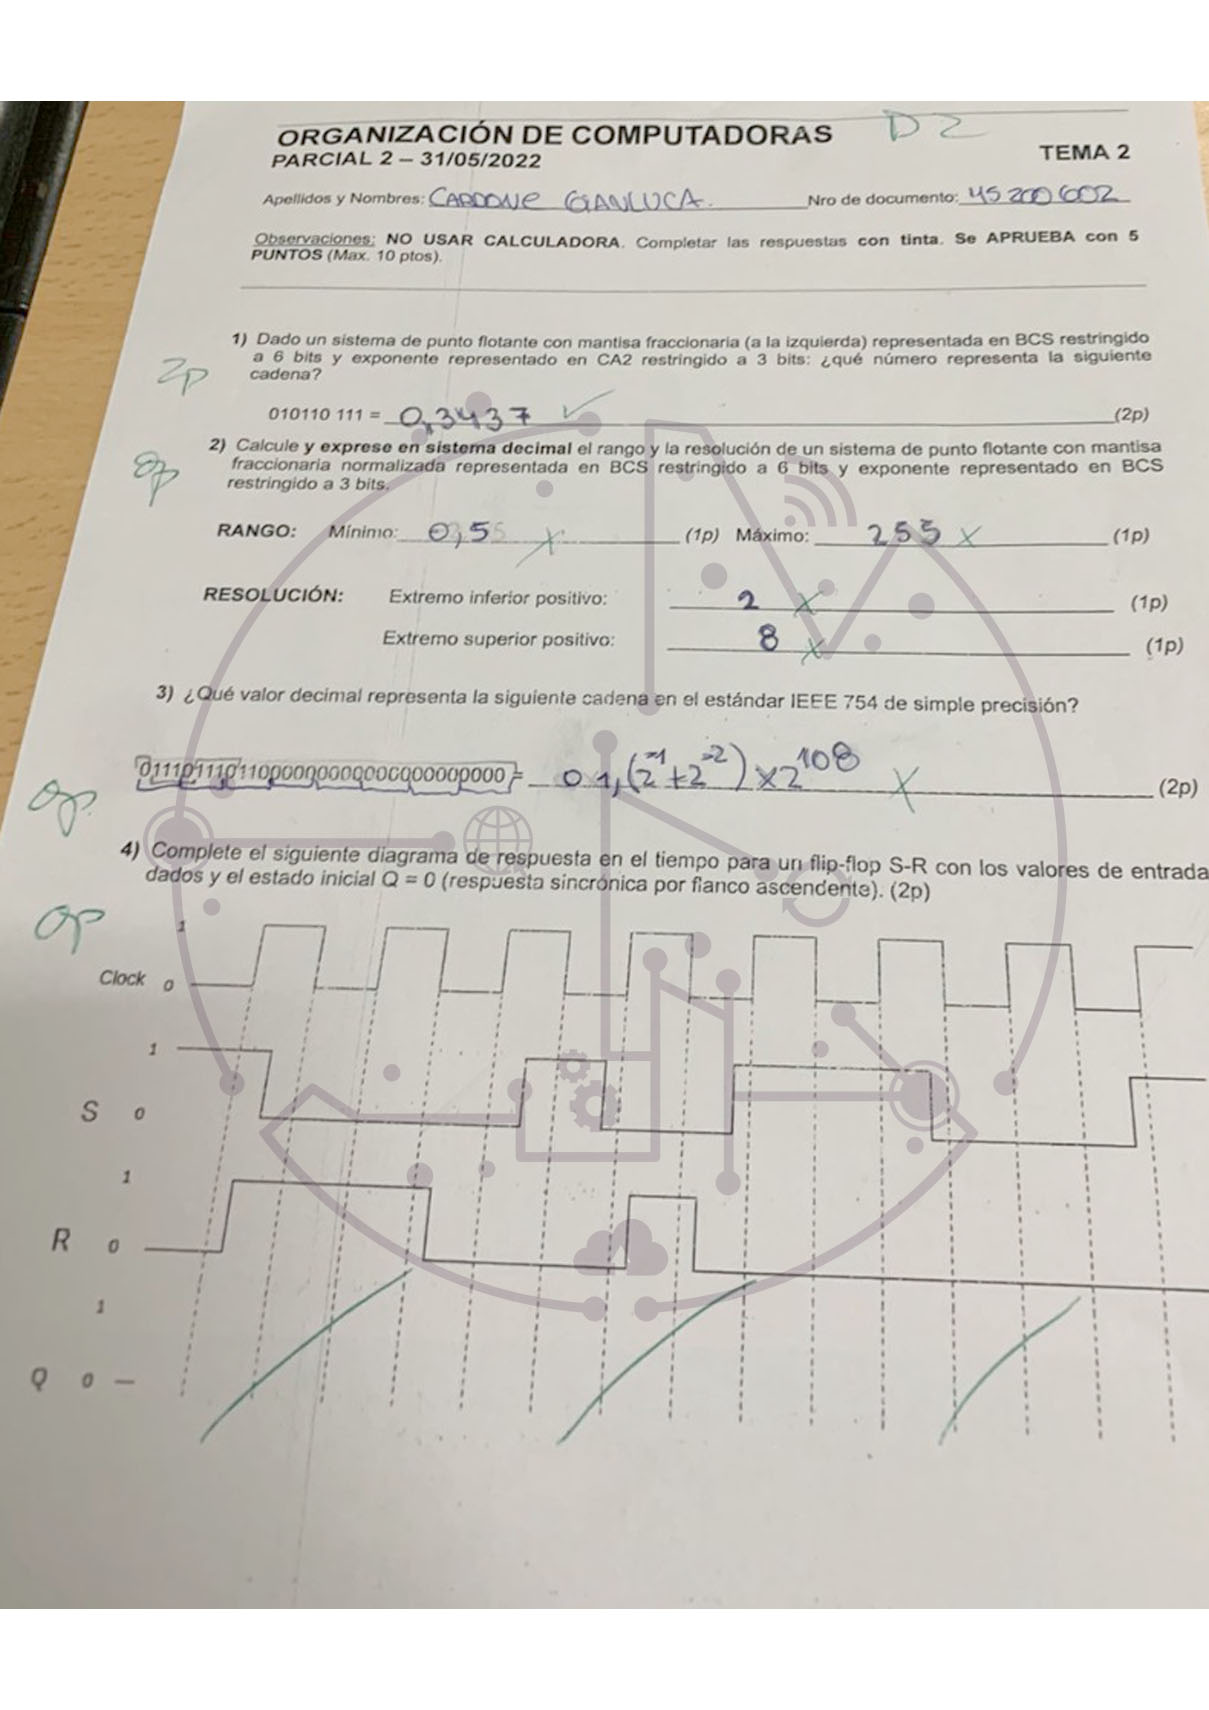 D2
ORGANIZACIÓN DE COMPUTADORAS
PARCIAL 2 – 31/05/2022 TEMA 2
Apellidos y Nombres: CARDONE GIANLUCA. Nro de documento: 45200602
Observaciones: NO USAR CALCULADORA. Completar las respuestas con tinta. Se APRUEBA con 5
PUNTOS (Max. 10 ptos).
1) Dado un sistema de punto flotante con mantisa fraccionaria (a la izquierda) representada en BCS restringido
a 6 bits y exponente representado en CA2 restringido a 3 bits: ¿qué número representa la siguiente
cadena?
2p
010110 111 = 0,3437 ✓ (2p)
2) Calcule y exprese en sistema decimal el rango y la resolución de un sistema de punto flotante con mantisa
fraccionaria normalizada representada en BCS restringido a 6 bits y exponente representado en BCS
restringido a 3 bits.
0p
RANGO: Mínimo: 0,5 X (1p) Máximo: 255 X (1p)
RESOLUCIÓN: Extremo inferior positivo: 2 X (1p)
Extremo superior positivo: 8 X (1p)
3) ¿Qué valor decimal representa la siguiente cadena en el estándar IEEE 754 de simple precisión?
= 0 1,(2⁻¹+2⁻²) x 2¹⁰⁸ X (2p)
0p
4) Complete el siguiente diagrama de respuesta en el tiempo para un flip-flop S-R con los valores de entrada
dados y el estado inicial Q = 0 (respuesta sincrónica por flanco ascendente). (2p)
0p
1
Clock 0
1
S 0
1
R 0
1
Q 0